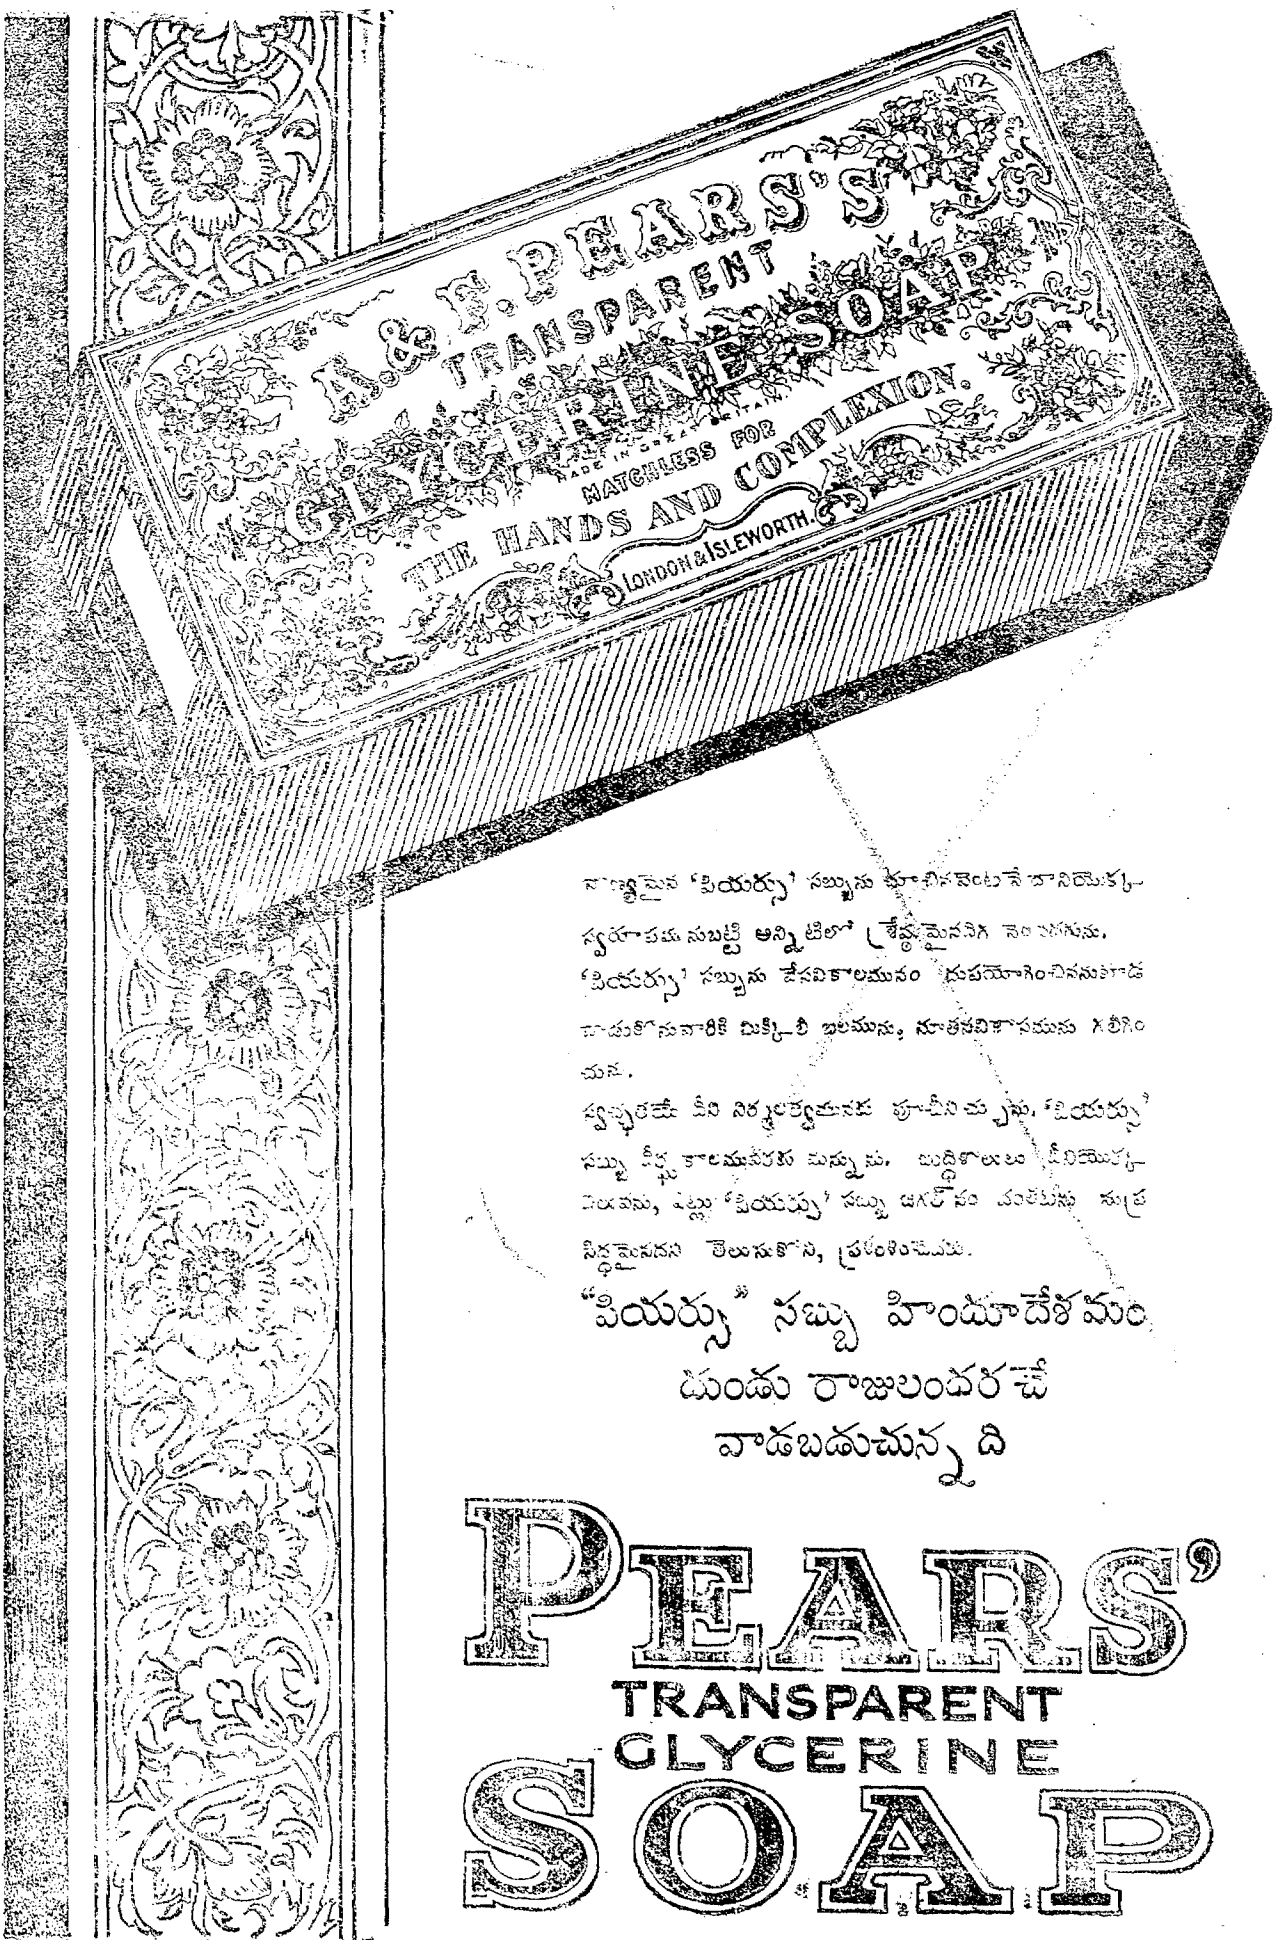 A. & F. PEARS'S
TRANSPARENT
GLYCERINE SOAP
MADE IN GREAT BRITAIN
MATCHLESS FOR
THE HANDS AND COMPLEXION.
LONDON & ISLEWORTH.
నాణ్యమైన ‘పియర్సు’ సబ్బును చూచినవెంటనే దానియొక్క
స్వరూపమునుబట్టి అన్నిటిలో శ్రేష్ఠమైనదిగ
‘పియర్సు’ సబ్బును వేసవికాలమునం దుపయోగించిననుకూడ
వాడుకొనువారికి మిక్కిలి బలమును, నూతనవికాసమును కలిగిం
చును.
స్వచ్ఛతయే దీని నిర్మలత్వమునకు పూచీనిచ్చును. ‘పియర్సు’
సబ్బు దీర్ఘకాలమువరకు మన్నును. బుద్ధిశాలులు దీనియొక్క
‘పియర్సు’ సబ్బు
సిద్ధమైనదని తెలుసుకొని, ప్రశంశించెదరు.
“పియర్సు” సబ్బు హిందూదేశమం
దుండు రాజులందరిచే
వాడబడుచున్నది
PEARS'
TRANSPARENT
GLYCERINE
SOAP